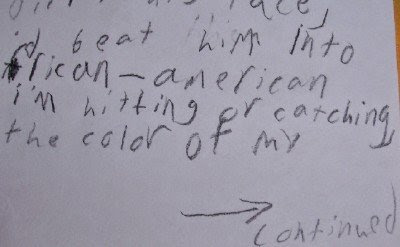 his face,
i'd beat him into
frican-american
i'm hitting or catching
the color of my
→
continued